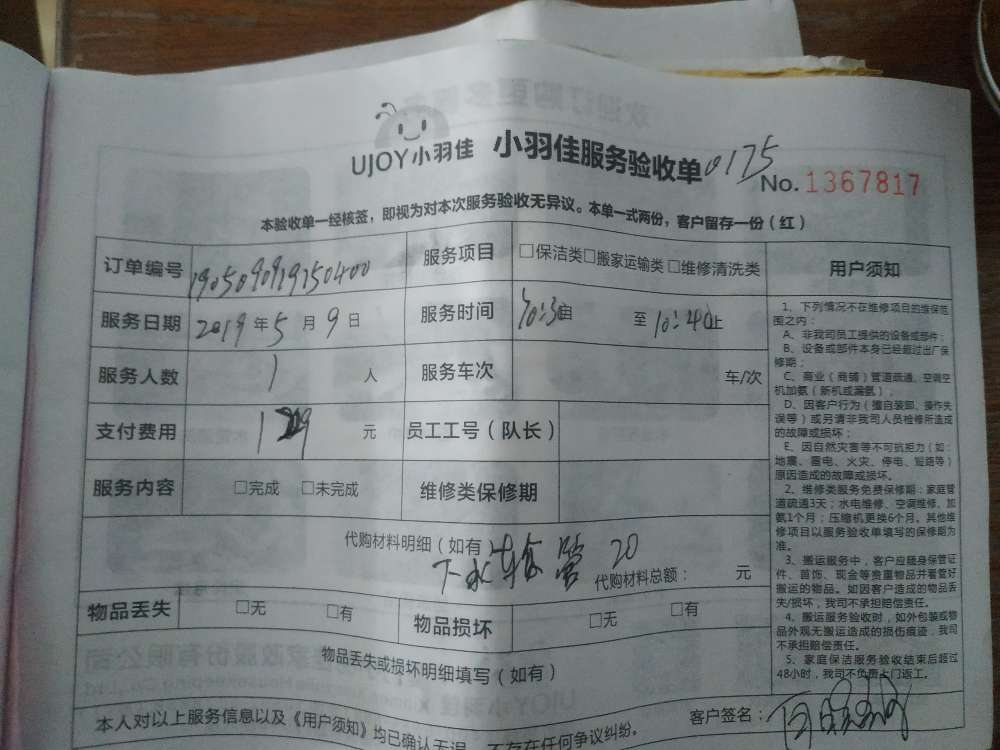 UJOY小羽佳 小羽佳服务验收单 0175
No. 1367817
本验收单一经核签，即视为对本次服务验收无异议。本单一式两份，客户留存一份（红）
订单编号 服务项目 □保洁类□搬家运输类□维修清洗类
服务日期 2019 年 5 月 9 日 服务时间 10:30 至 10:40止
服务人数 1 人 服务车次 车/次
支付费用 元 员工工号（队长）
服务内容 □完成 □未完成 维修类保修期
代购材料明细（如有
下水 管 20
代购材料总额： 元
物品丢失 □无 □有 物品损坏 □无 □有
物品丢失或损坏明细填写（如有）
本人对以上服务信息以及《用户须知》均已确认无误，不存在任何争议纠纷。
客户签名：
用户须知
1、下列情况不在维修项目的维保范
围之内：
A、非我司员工提供的设备或部件；
B、设备或部件本身已经超过出厂保
修期；
C、商业（商铺）管道疏通、空调空
机加氨（新机或漏氨）；
D、因客户行为（擅自装卸、操作失
误等）或另请非我司人员检修所造成
的故障或损坏；
E、因自然灾害等不可抗拒力（如：
地震、雷电、火灾、停电、短路等）
原因造成的故障或损坏。
2、维修类服务免费保修期：家庭管
道疏通3天；水电维修、空调维修、加
氨1个月；压缩机更换6个月。其他维
修项目以服务验收单填写的保修期为
准。
3、搬运服务中，客户应随身保管证
件、首饰、现金等贵重物品并看管好
搬运的物品。如因客户造成的物品丢
失/损坏，我司不承担赔偿责任。
4、搬运服务验收时，如外包装或物
品外观无搬运造成的损伤痕迹，我司
不承担赔偿责任。
5、家庭保洁服务验收结束后超过
48小时，我司不负责上门返工。